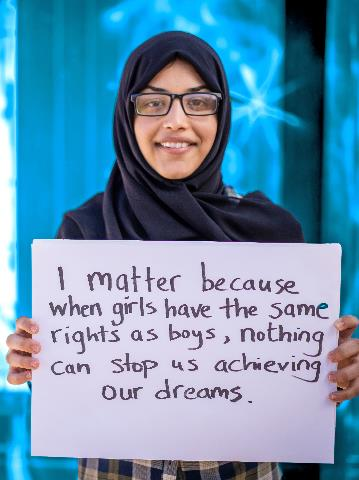 I matter because
when girls have the same
rights as boys, nothing
can stop us achieving
our dreams.